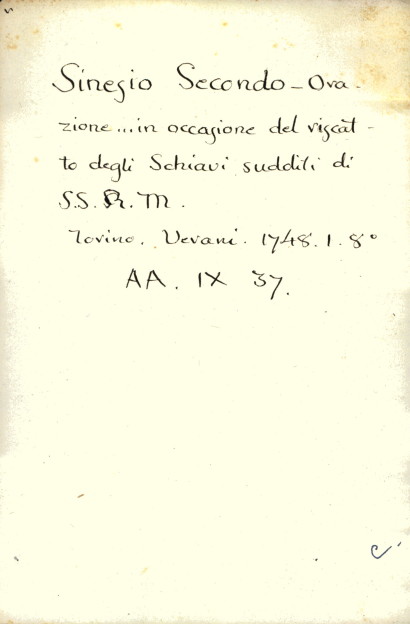 Sinesio Secondo - Ora-
zione... in occasione del riscat-
to degli Schiavi sudditi di
S.S.R.M.
Torino. Verani. 1748. 1. 8°
AA. IX 37.